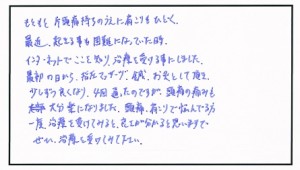 もともと 片頭痛持ちのうえに肩こりもひどく、
最近、起きる事も困難になっていた時、
インターネットでここを知り、治療を受ける事にしました。
最初の日から、指圧マッサージ、鍼、お灸として頂き、
少しずつ良くなり、4回通ったのですが、頭痛の痛みも
大分 楽になりました。頭痛、肩こりで悩んでる方
一度、治療を受けてみると、良さが分かると思いますので
ぜひ、治療を受けてみて下さい。